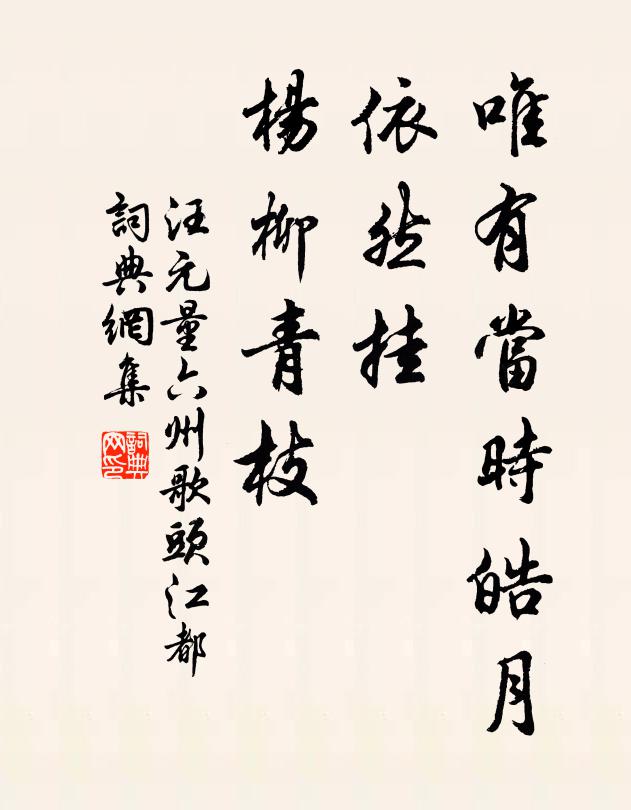 唯有當時皓月
依然挂
楊柳青枝
汪元量六州歌頭江都
詞典網集
詞典网印